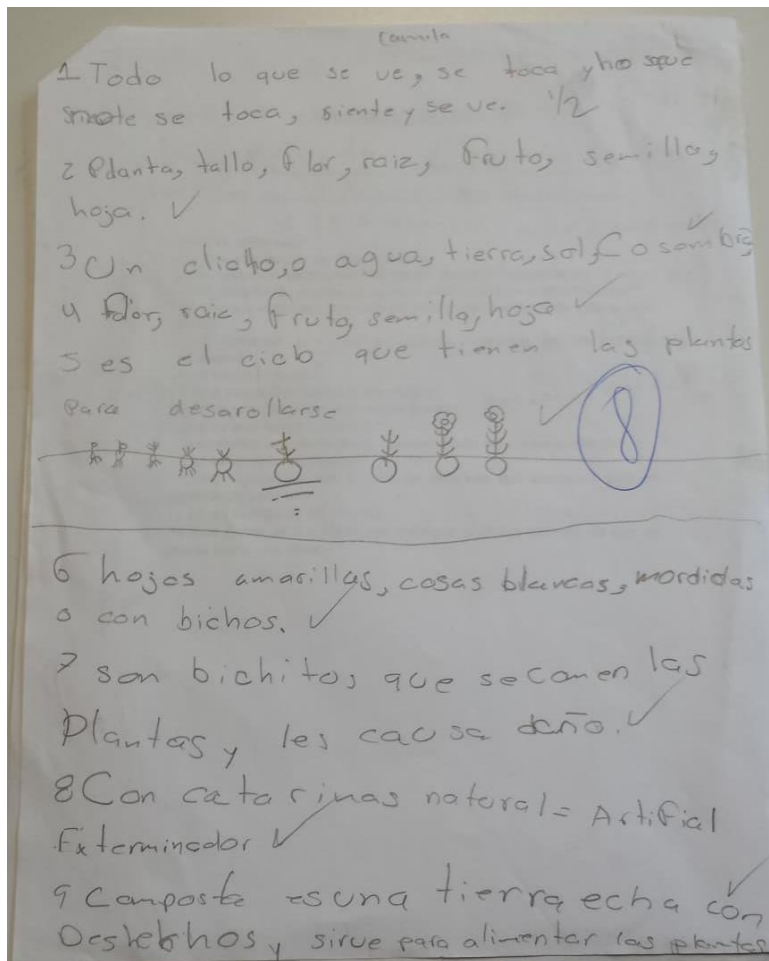 Camila
1 Todo lo que se ve, se toca y
se toca, siente y se ve. 1/2
2 Planta, tallo, flor, raiz, fruto, semilla,
hoja.
3 Un agua, tierra, sol, o sombra
4 flor, raic, fruto, semilla, hoja
5 es el ciclo que tienen las plantas
para desarollarse
8
6 hojas amarillas, cosas blancas, mordidas
o con bichos.
7 son bichitos que se comen las
Plantas y les causa daño.
8 Con catarinas natural = Artifial
Exterminador
9 Composte es una tierra echa con
y sirve para alimentar las plantas